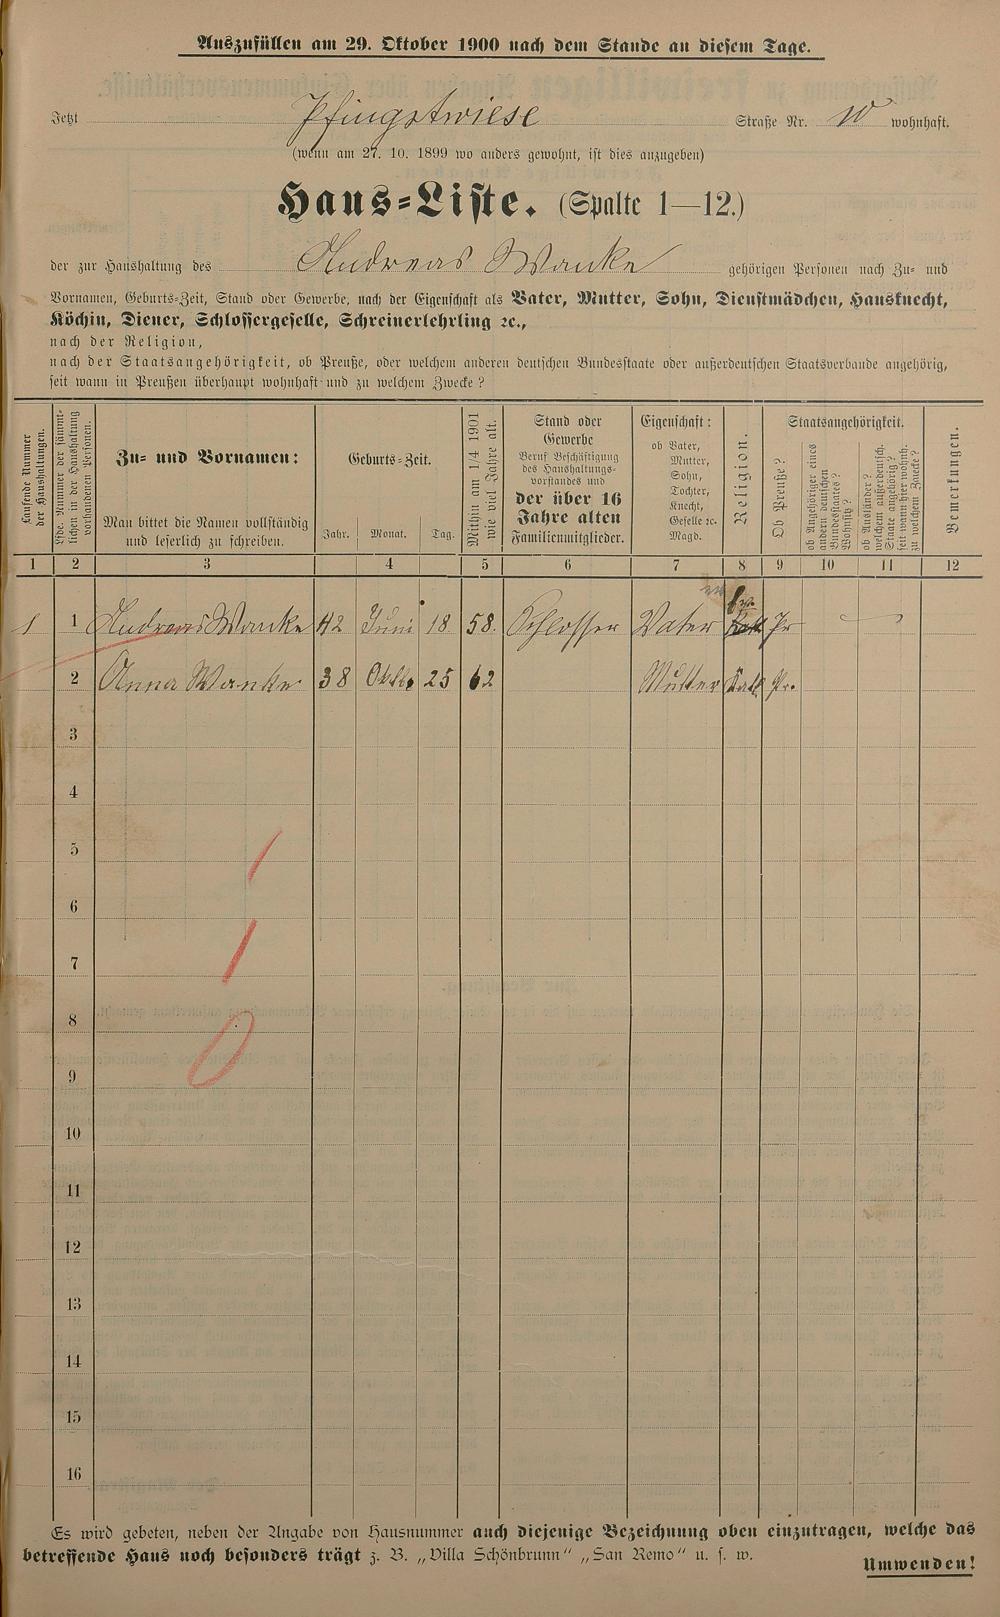 Auszufüllen am 29. Oktober 1900 nach dem Stande an diesem Tage.
Jetzt Pfingstwiese Straße Nr. 10 wohnhaft.
(wenn am 27. 10. 1899 wo anders gewohnt, ist dies anzugeben)
Haus-Liste. (Spalte 1—12.)
der zur Haushaltung des Andreas Wanke gehörigen Personen nach Zu- und
Vornamen, Geburts-Zeit, Stand oder Gewerbe, nach der Eigenschaft als Vater, Mutter, Sohn, Dienstmädchen, Hausknecht,
Köchin, Diener, Schlossergeselle, Schreinerlehrling ꝛc.,
nach der Religion,
nach der Staatsangehörigkeit, ob Preuße, oder welchem anderen deutschen Bundesstaate oder außerdeutschen Staatsverbande angehörig,
seit wann in Preußen überhaupt wohnhaft und zu welchem Zwecke?
Laufende Nummer
der Haushaltungen.
Lfde. Nummer der sämmt-
lichen in der Haushaltung
vorhandenen Personen.
Zu- und Vornamen:
Man bittet die Namen vollständig
und leserlich zu schreiben.
Geburts-Zeit.
Jahr. Monat. Tag.
Mithin am 1/4 1901
wie viel Jahre alt.
Stand oder
Gewerbe
Beruf Beschäftigung
des Haushaltungs-
vorstandes und
der über 16
Jahre alten
Familienmitglieder.
Eigenschaft:
ob Vater,
Mutter,
Sohn,
Tochter,
Knecht,
Geselle ꝛc.
Magd.
Religion.
Staatsangehörigkeit.
Ob Preuße?
ob Angehöriger eines
andern deutschen
Bundesstaates?
Wohnsitz?
ob Ausländer?
welchem außerdeutsch.
Staate angehörig?
seit wann hier wohnh.
zu welchem Zwecke?
Bemerkungen.
1 2 3 4 5 6 7 8 9 10 11 12
ev.
1 1 Andreas Wanke 42 Juni 18 58. Schlosser Vater Kat. Pr
2 Anna Wanke 38 Oktb. 25 62 Mutter Kat. Pr.
3
4
5
6
7
8
9
10
11
12
13
14
15
16
1
1
0
Es wird gebeten, neben der Angabe von Hausnummer auch diejenige Bezeichnung oben einzutragen, welche das
betreffende Haus noch besonders trägt z. B. „Villa Schönbrunn“ „San Remo“ u. s. w.
Umwenden!